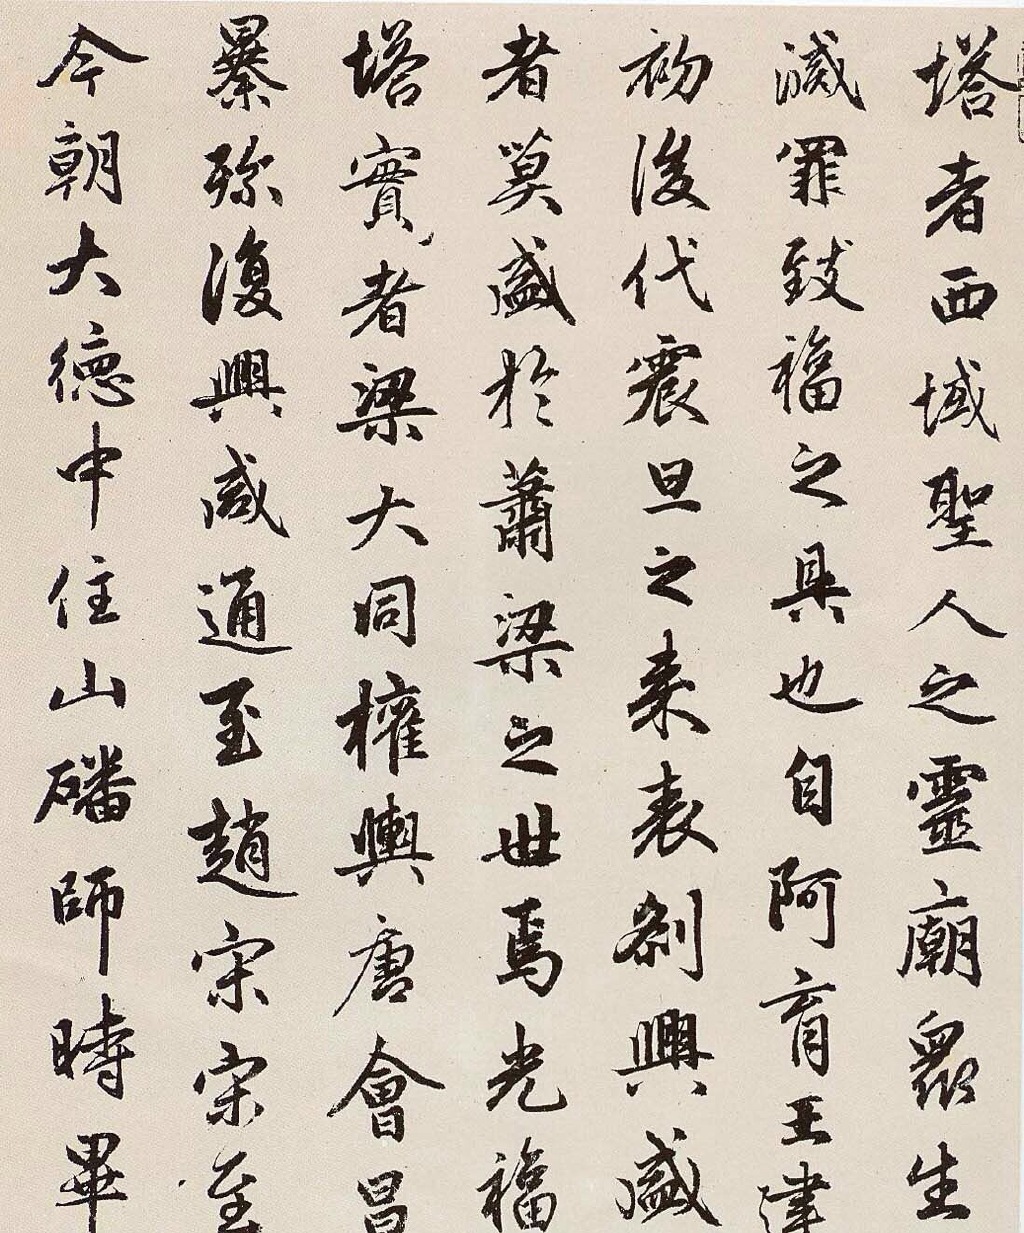 塔者西域聖人之靈廟衆生
滅罪致福之具也自阿育王建
初後代震旦之来表刹興盛
者莫盛於蕭梁之世焉光福
塔實者梁大同權輿唐會昌
㬥弥復興咸通至趙宋宋至
今朝大德中住山磻師時畢